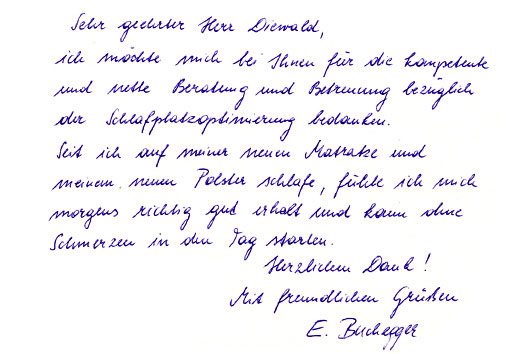 Sehr geehrter Herr Diewald,
ich möchte mich bei Ihnen für die kompetente
und nette Beratung und Betreuung bezüglich
der Schlafplatzoptimierung bedanken.
Seit ich auf meiner neuen Matratze und
meinem neuen Polster schlafe, fühle ich mich
morgens richtig gut erholt und kann ohne
Schmerzen in den Tag starten.
Herzlichen Dank!
Mit freundlichen Grüßen
E. Buchegger